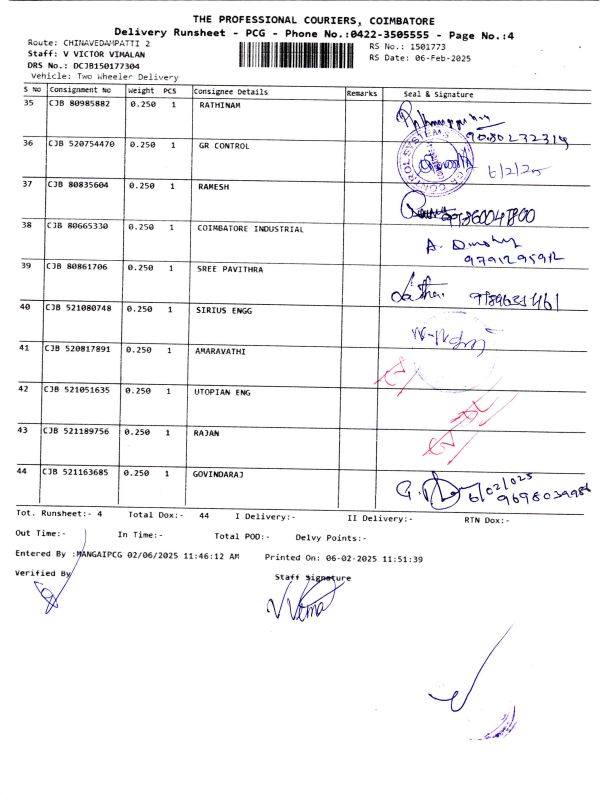 THE PROFESSIONAL COURIERS, COIMBATORE
Delivery Runsheet - PCG - Phone No.:0422-3505555 - Page No.:4
Route: CHINAVEDAMPATTI 2
RS No.: 1501773
Staff: V VICTOR VIMALAN
RS Date: 06-Feb-2025
DRS No.: DCJB150177304
Vehicle: Two Wheeler Delivery
S No Consignment No Weight PCS Consignee Details Remarks Seal & Signature
35 CJB 80985882 0.250 1 RATHINAM
9080232319
36 CJB 520754470 0.250 1 GR CONTROL
GR CONTROL SYSTEMS
6/2/25
37 CJB 80835604 0.250 1 RAMESH
38 CJB 80665330 0.250 1 COIMBATORE INDUSTRIAL
39 CJB 80861706 0.250 1 SREE PAVITHRA
40 CJB 521080748 0.250 1 SIRIUS ENGG
41 CJB 520817891 0.250 1 AMARAVATHI
42 CJB 521051635 0.250 1 UTOPIAN ENG
43 CJB 521189756 0.250 1 RAJAN
44 CJB 521163685 0.250 1 GOVINDARAJ
6/02/025
Tot. Runsheet:- 4 Total Dox:- 44 I Delivery:- II Delivery:- RTN Dox:-
Out Time:- In Time:- Total POD:- Delvy Points:-
Entered By :MANGAIPCG 02/06/2025 11:46:12 AM Printed On: 06-02-2025 11:51:39
Verified By
Staff Signature